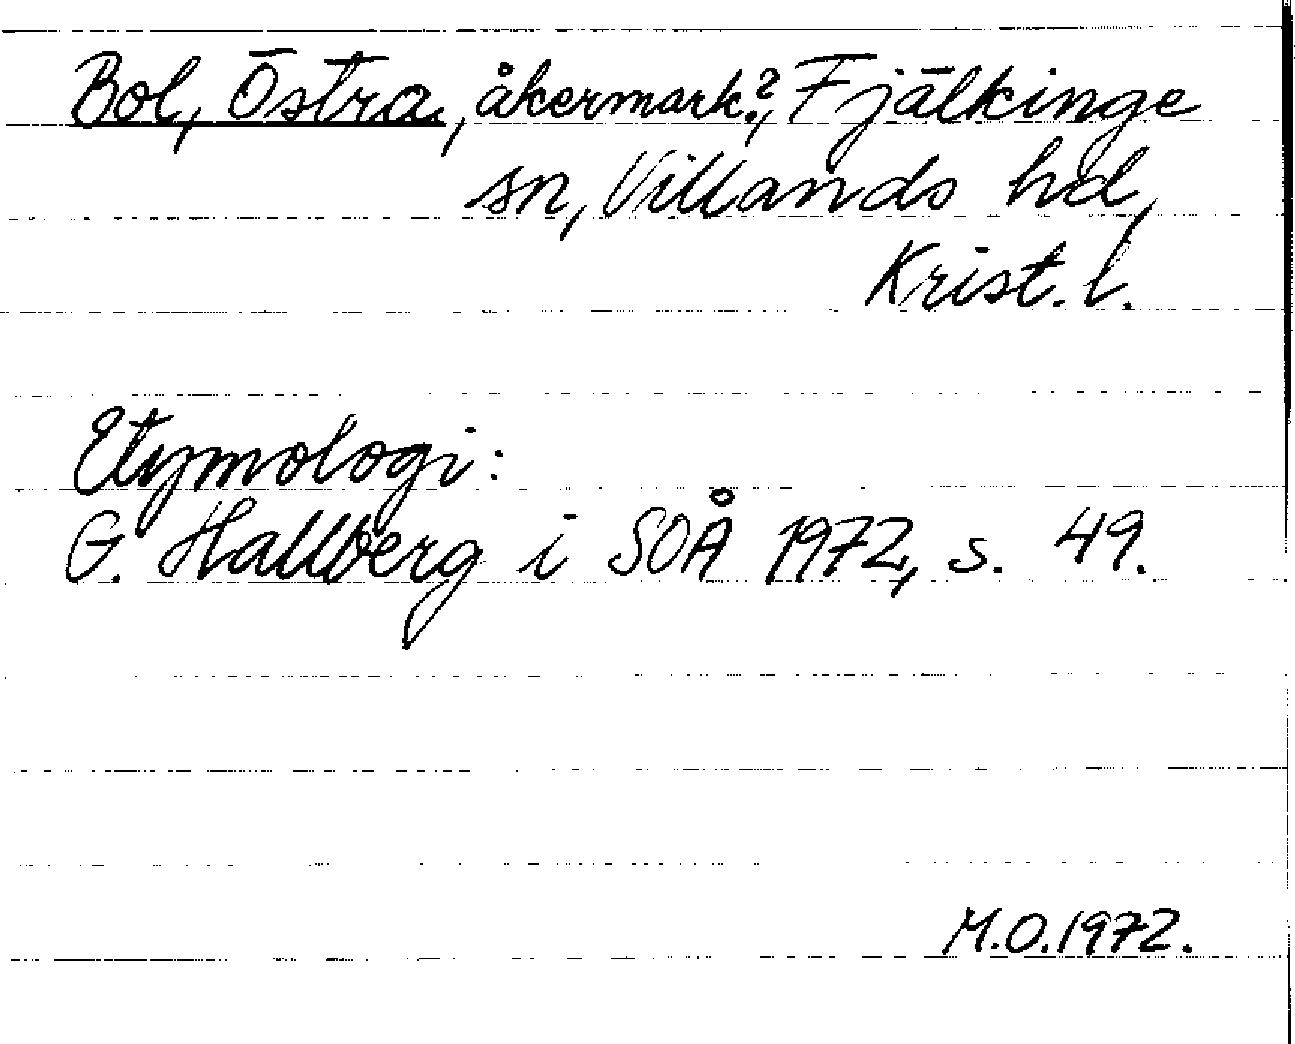 Bol, Östra, åkermark?, Fjälkinge
sn, Villands hd,
Krist. l.
Etymologi:
G. Hallberg i SOÅ 1972, s. 49.
M.O. 1972.